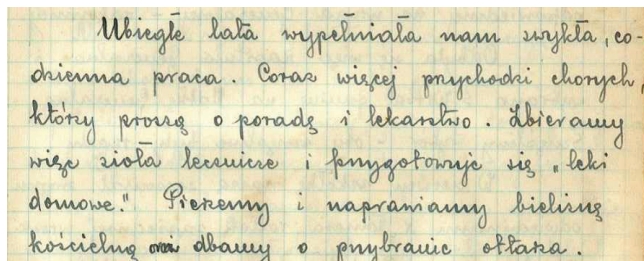 Ubiegłe lata wypełniała nam zwykła, co-
dzienna praca. Coraz więcej przychodzi chorych,
którzy proszą o poradę i lekarstwo. Zbieramy
więc zioła lecznicze i przygotowuje się „leki
domowe." Pierzemy i naprawiamy bieliznę
kościelną oraz dbamy o przybranie ołtarza.